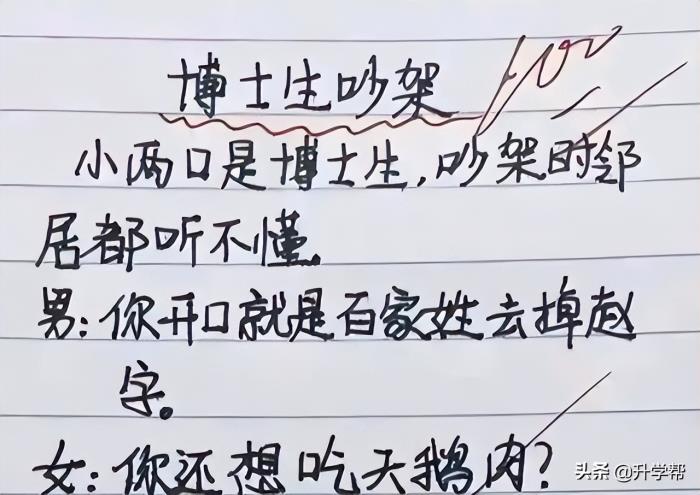 博士生吵架 100
小两口是博士生,吵架时邻
居都听不懂。
男:你开口就是百家姓去掉赵
字。
女:你还想吃天鹅肉?
头条 @升学帮